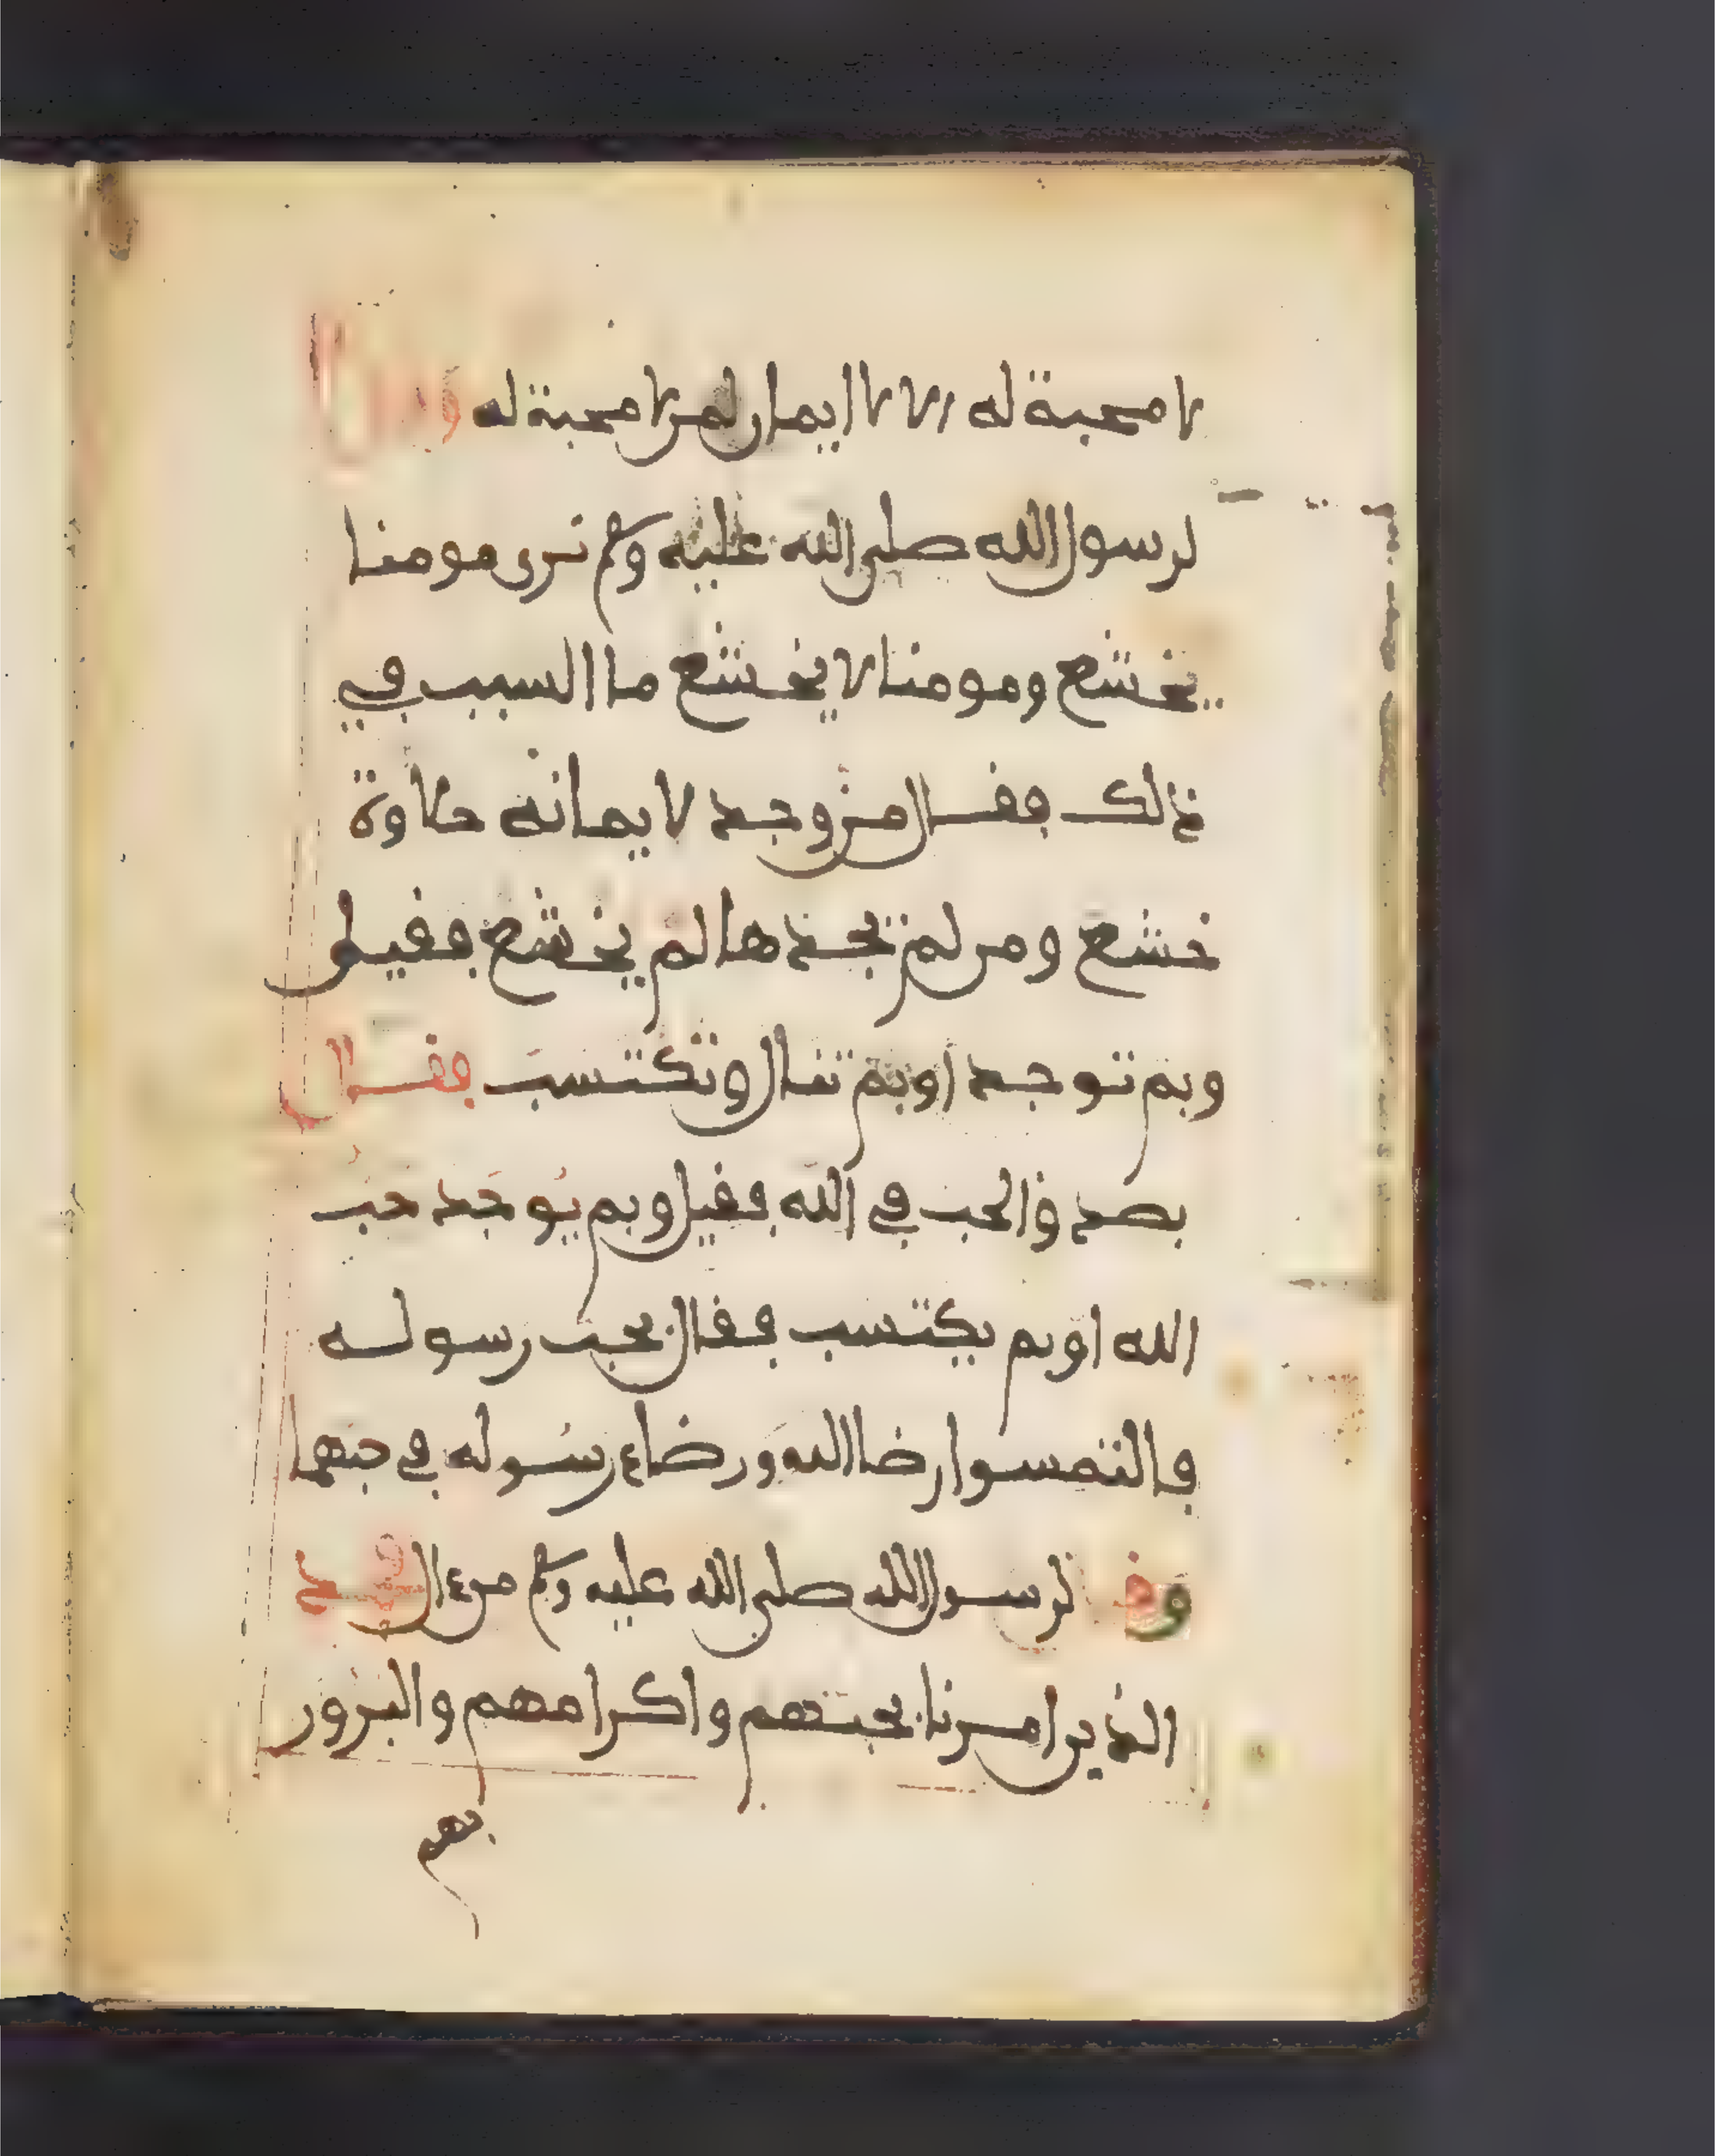 لا محبة له الا لا ايمان لمن لا محبة له
لرسول الله صلى الله عليه وسلم نرى مومنا
يخشع ومومنا لا يخشع ما السبب في
ذلك فقال من وجد لايمانه حلاوة
خشع ومن لم يجدها لم يخشع فقيل
وبم توجد او بم تنال وتكتسب فقال
بصدق الحب في الله فقيل وبم يوجد حب
الله او بم يكتسب فقال بحب رسوله
فالتمسوا رضا الله ورضاء رسوله في حبهما
وقيل لرسول الله صلى الله عليه وسلم من ءال محمد
الذين امرنا بحبهم واكرامهم والبرور
بهم